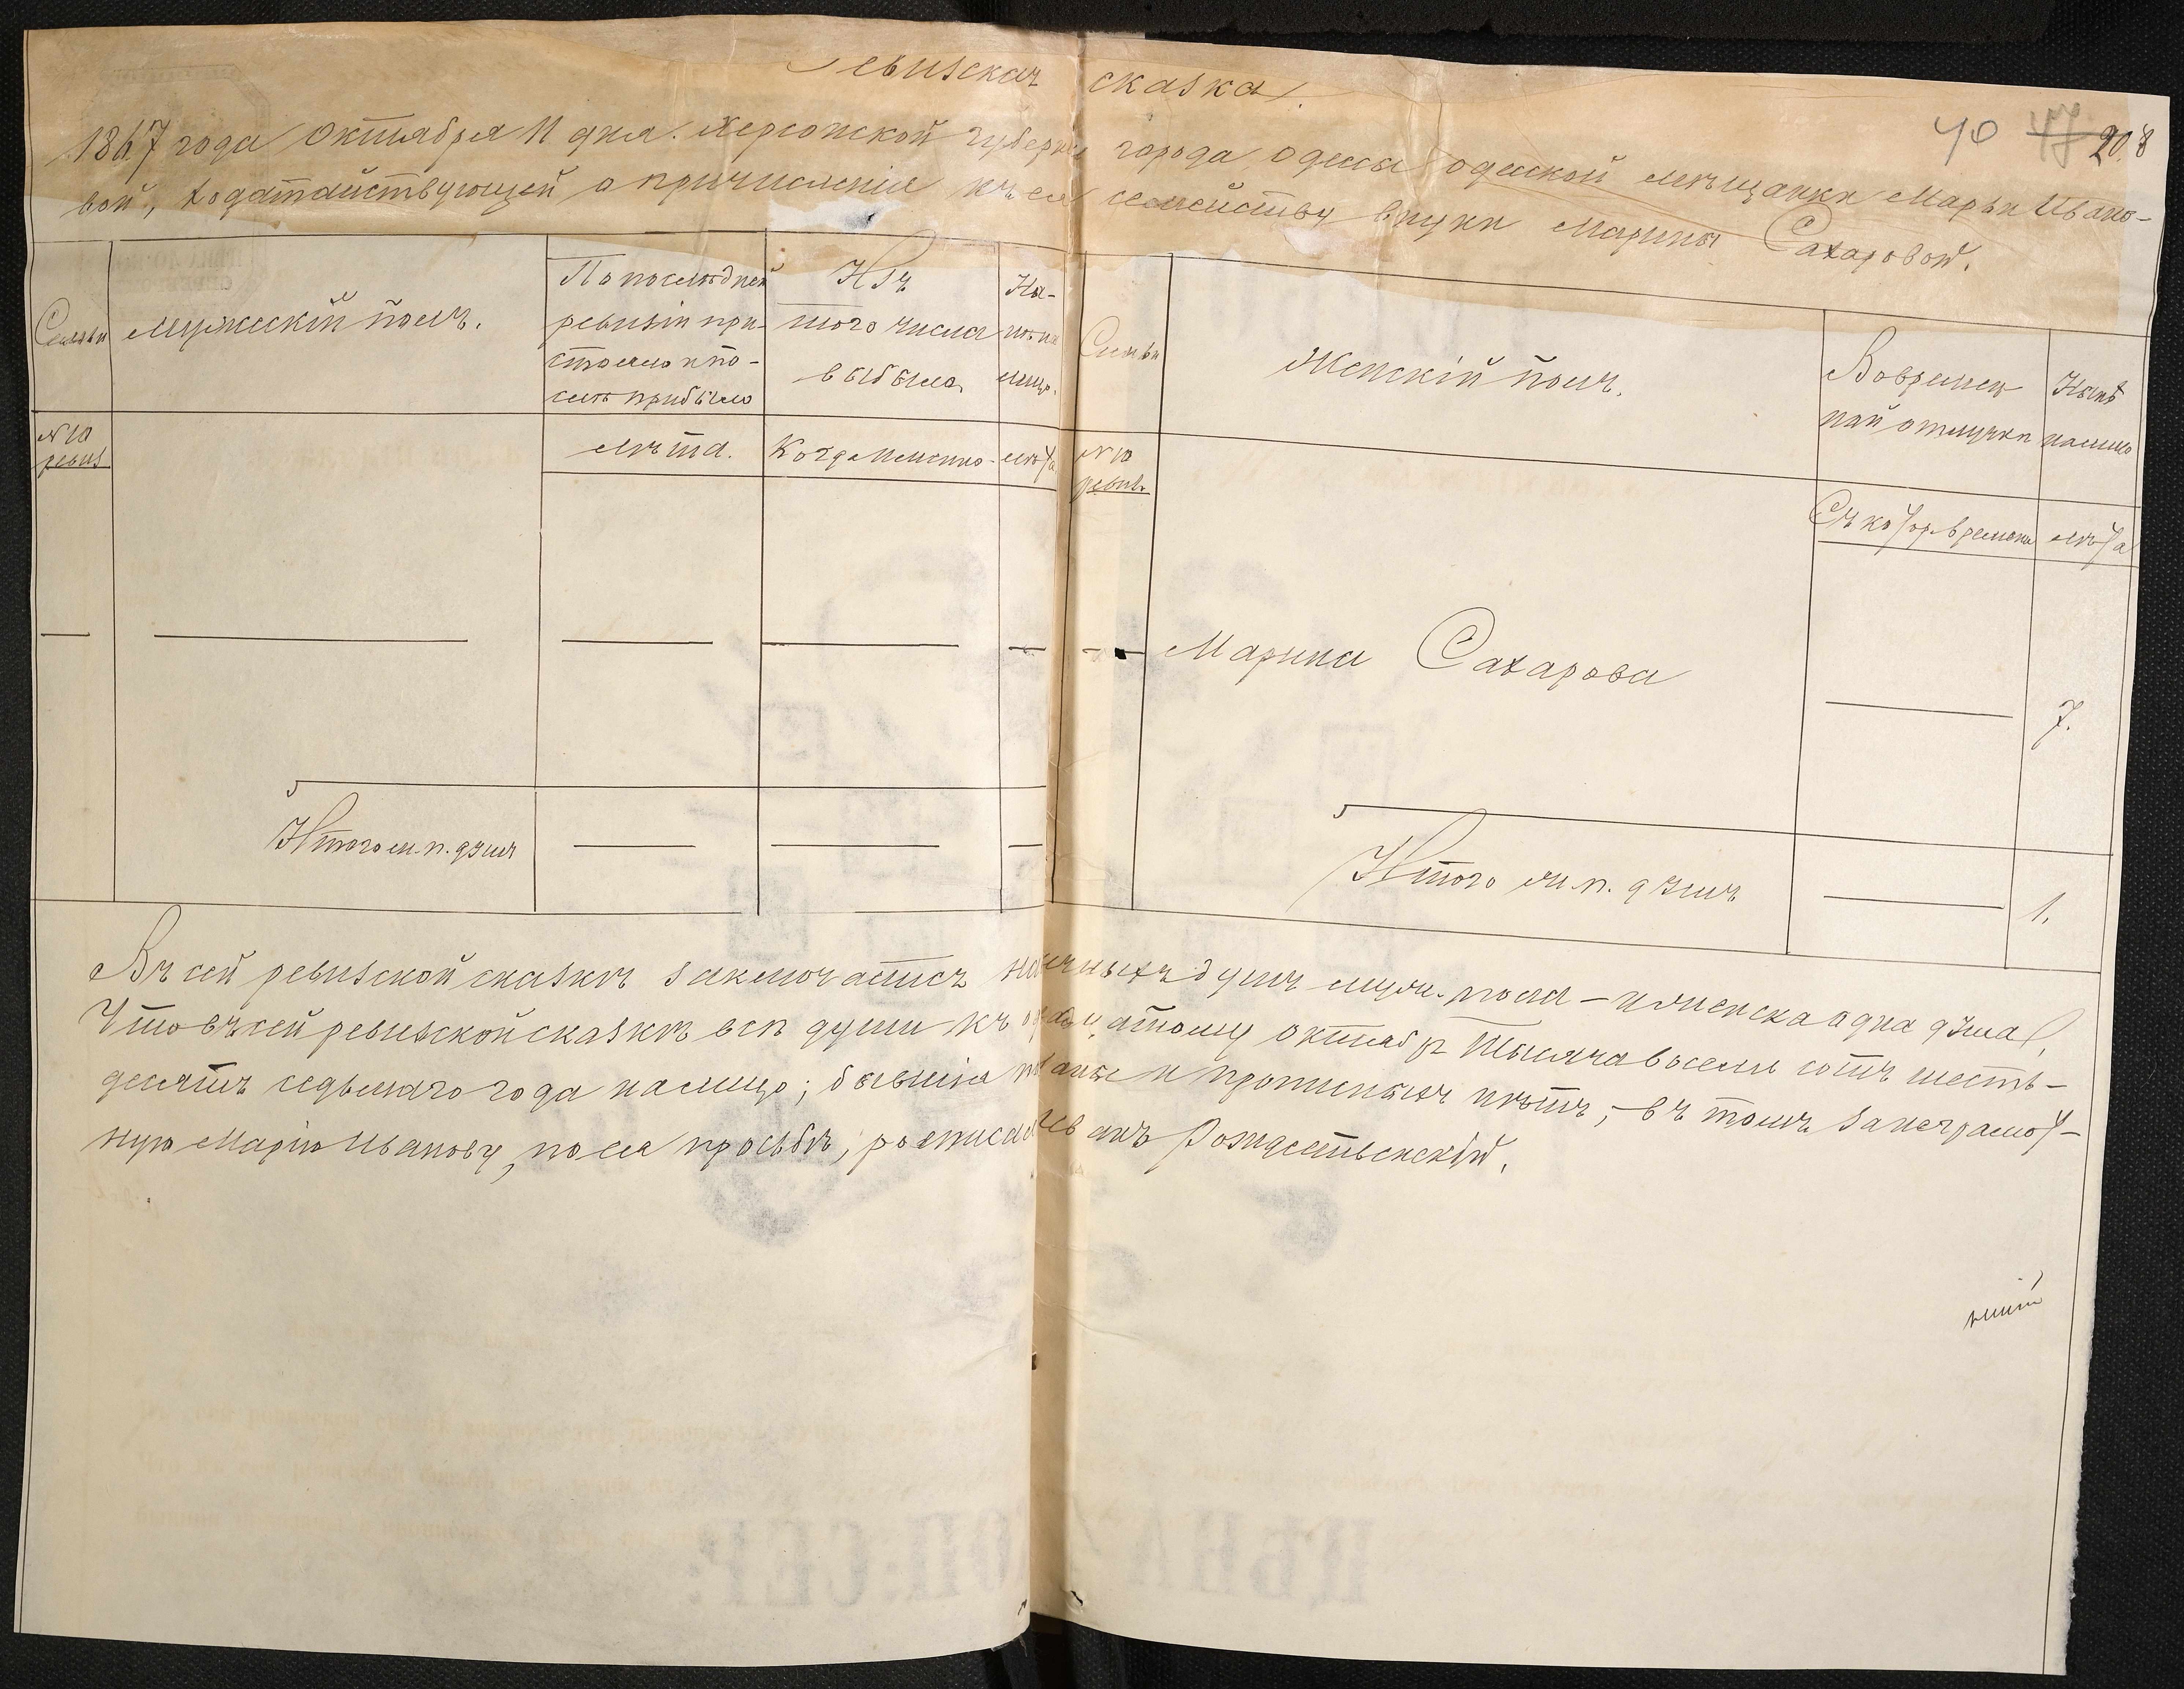 Ревизская сказка.
40 47 208
1867 года Октября 11 дня. Херсонской губерніи города Одессы одесской мѣщанки Марьи Ивано-
вой, ходатайствующей о причисленіи къ ея семейству внуки Марины Сахаровой.
Семьи
Мужескій полъ.
По послѣдней
ревизіи при-
стояло и по-
слѣ прибыло
Изъ
того числа
выбыло
На-
лицо.
Семьи
Женскій полъ.
Во времен
ной отлучки
Нынѣ
налицо
№ 10
ревиз
лѣта.
Когда именно
лѣта
№ 10
ревиз
Съ котор. времени
лѣта
Марина Сахарова
7.
Итого м. п. душъ
Итого ж. п. душъ
1.
Въ сей ревизской сказкѣ заключается наличныхъ душъ муж. пола – и женска одна душа.
Что въ сей ревизской сказкѣ всѣ души къ одинадцатому октябр тысяча восемь сотъ шесть-
десятъ седьмаго года налицо; и прописныхъ нѣтъ, – въ томъ за неграмот-
ную Марію Иванову, по ея просьбѣ, росписался Рождественскій.